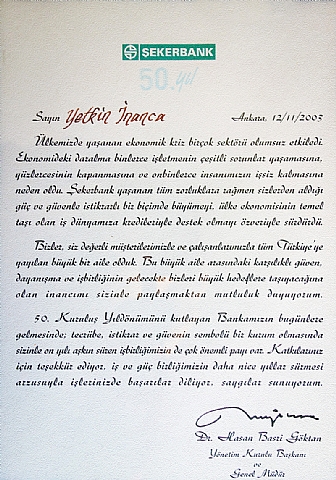 ŞEKERBANK
50. yıl
Sayın Yetkin İnanca Ankara, 12/11/2003
Ülkemizde yaşanan ekonomik kriz birçok sektörü olumsuz etkiledi.
Ekonomideki daralma binlerce işletmenin çeşitli sorunlar yaşamasına,
yüzlercesinin kapanmasına ve onbinlerce insanımızın işsiz kalmasına
neden oldu. Şekerbank yaşanan tüm zorluklara rağmen sizlerden aldığı
güç ve güvenle istikrarlı bir biçimde büyümeyi, ülke ekonomisinin temel
taşı olan iş dünyamıza kredileriyle destek olmayı özveriyle sürdürdü.
Bizler, siz değerli müşterilerimizle ve çalışanlarımızla tüm Türkiye'ye
yayılan büyük bir aile olduk. Bu büyük aile arasındaki karşılıklı güven,
dayanışma ve işbirliğinin gelecekte bizleri büyük hedeflere taşıyacağına
olan inancımı sizinle paylaşmaktan mutluluk duyuyorum.
50. Kuruluş Yıldönümünü kutlayan Bankamızın bugünlere
gelmesinde; tecrübe, istikrar ve güvenin sembolü bir kurum olmasında
sizinle on yılı aşkın süren işbirliğimizin de çok önemli payı var. Katkılarınız
için teşekkür ediyor, iş ve güç birliğimizin daha nice yıllar sürmesi
arzusuyla işlerinizde başarılar diliyor, saygılar sunuyorum.
Dr. Hasan Basri Göktan
Yönetim Kurulu Başkanı
ve
Genel Müdür